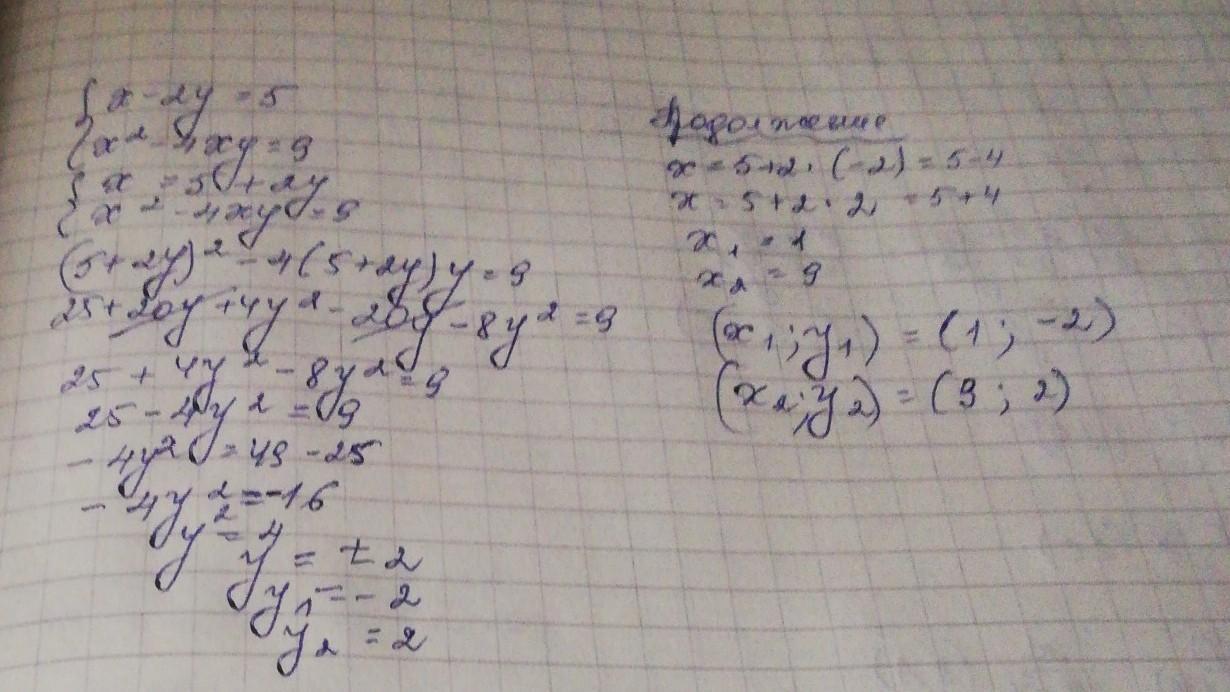 { x - 2y = 5
{ x² - 4xy = 9
{ x = 5 + 2y
{ x² - 4xy = 9
(5+2y)² - 4(5+2y)y = 9
25 + 20y + 4y² - 20y - 8y² = 9
25 + 4y² - 8y² = 9
25 - 4y² = 9
- 4y² = 49 - 25
- 4y² = -16
y² = 4
y = ± 2
y₁ = - 2
y₂ = 2
Продолжение
x = 5+2·(-2) = 5-4
x = 5+2·2 = 5+4
x₁ = 1
x₂ = 9
(x₁; y₁) = (1; -2)
(x₂; y₂) = (9; 2)